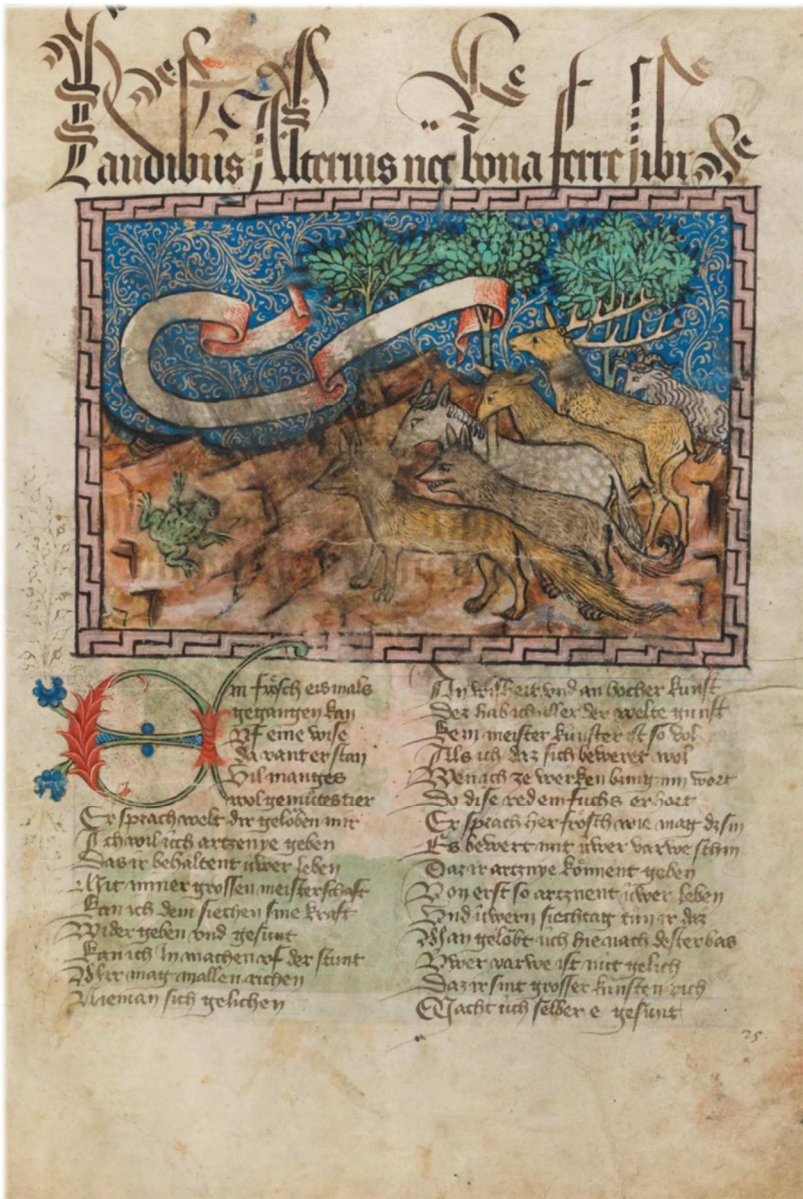 Laudibus Alterius nec bona ferre sibi
Ein frösch ersmals
gegangen kan
Uf eine wise
da vant er stan
Vil manges
wol gemütes tier
Er sprach welt dir geloben mir
Ich wil üch artzenye geben
Das ir behaltent üwer leben
Mit miner grossen meisterschaft
Kan ich dem siechen sine kraft
Wider geben vnd gesunt
Kan ich In machen vf der stunt
Mir mag In allen richen
Nieman sich gelichen
An wisheit vnd an hocher kunst
Dez hab ich aller der welte gunst
Kein meister kunster ist so vol
Als ich daz sich beweret wol
Wenach ze werken bring min wort
Do dise red ein fuchs erhort
Er sprach her frösch wie mag dz sin
Es bewert mit üwer varwe schin
Daz ir artznye könnent geben
Von erst so artznent üwer leben
Vnd üwern siechtag tun er daz
Man gelöbt üch hie nach dester bas
Vwer varwe ist nut gelich
Daz ir sint grosser kunsten rich
Macht üch selber e gesunt
25.